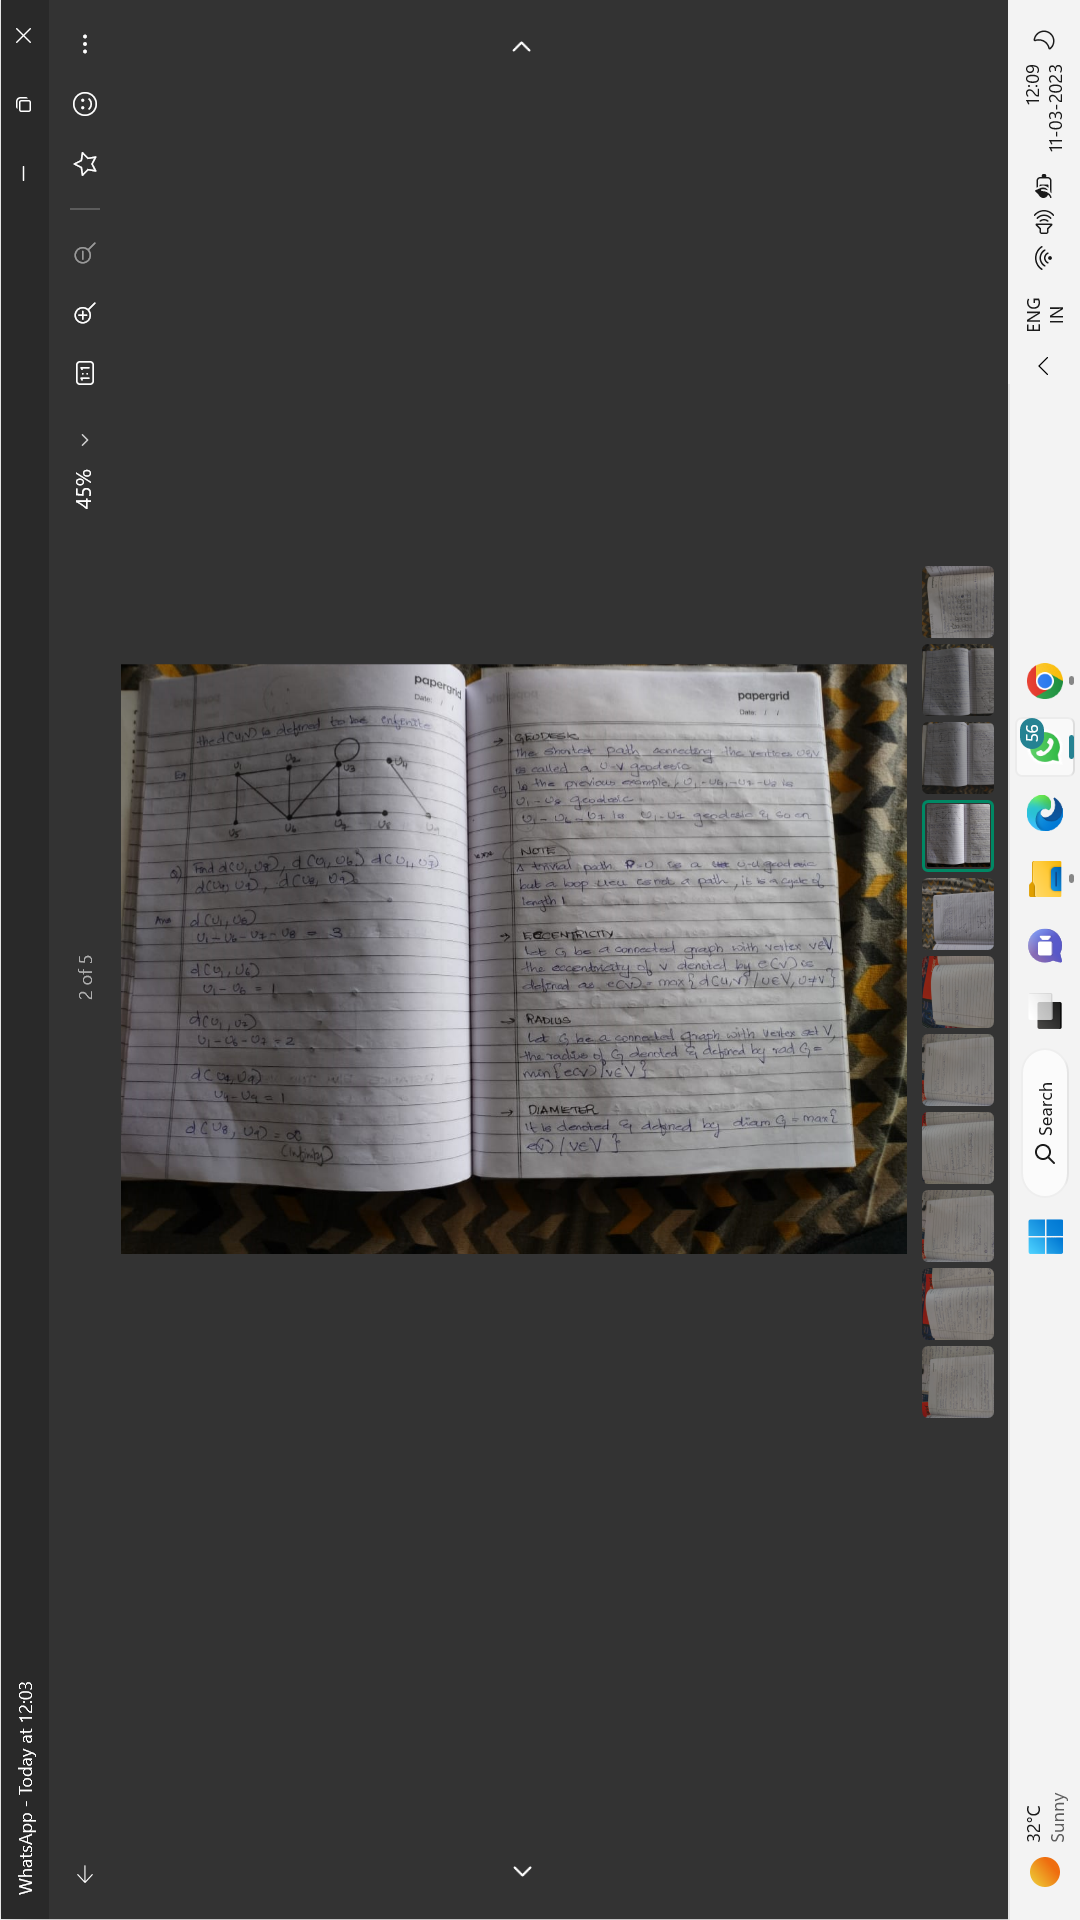 WhatsApp - Today at 12:03
2 of 5
45%
1:1
papergrid
Date: / /
the d(u,v) is defined to be infinite
Eg
v1 v2 v3 v4
v5 v6 v7 v8 v9
Q) Find d(v1, v8), d(v1, v6), d(v1, v7)
d(v4, v9), d(v8, v9).
Ans d(v1, v8)
v1 - v6 - v7 - v8 = 3
d(v1, v6)
v1 - v6 = 1
d(v1, v7)
v1 - v6 - v7 = 2
d(v4, v9)
v4 - v9 = 1
d(v8, v9) = ∞
(infinity)
papergrid
Date: / /
→ GEODESIC
the shortest path connecting the vertices u & v
is called a u-v geodesic
eg In the previous example, v1 - v6 - v7 - v8 is
v1 - v8 geodesic.
v1 - v6 - v7 is v1 - v7 geodesic & so on
*** NOTE
A trivial path P=u is a u-u geodesic
but a loop is not a path, it is a cycle of
length 1
→ ECCENTRICITY
Let G be a connected graph with vertex v∈V,
the eccentricity of v denoted by e(v) is
defined as e(v) = max { d(u,v) / u∈V, u≠v }
→ RADIUS
Let G be a connected graph with vertex set V,
the radius of G denoted & defined by rad G =
min { e(v) / v∈V }
→ DIAMETER
It is denoted & defined by diam G = max {
e(v) / v∈V }
32°C
Sunny
Search
56
ENG
IN
12:09
11-03-2023